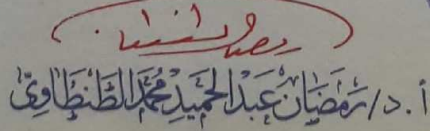 أ.د/رَمَضَان عَبْدالحَمِيدِ مُحَمَّد الطَّنْطَاوِيّ